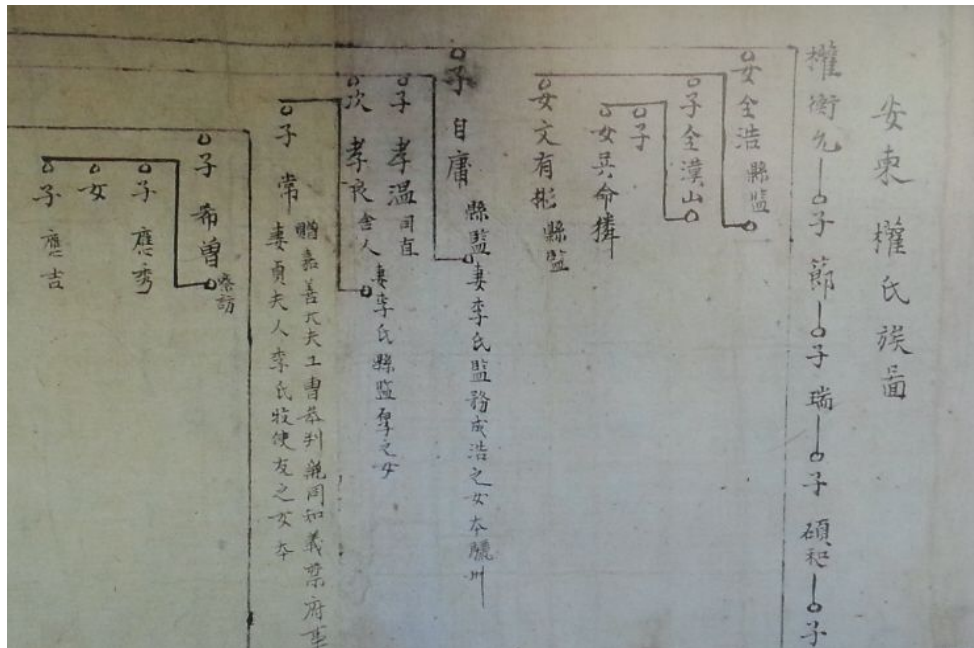 安東權氏族啚
權衡允 子節 子瑞 子碩和 子
女全浩 縣監
子全漢山
子
女吳命擀
女文有彬 縣監
子自庸 縣監妻李氏監務成浩之女本驪州
子孝温 司直
次孝良 舍人妻李氏縣監孯之女
子常 贈嘉善大夫工曹叅判兼同知義禁府事
妻貞夫人李氏牧使友之女本
子希曾 察訪
子應秀
女
子應吉